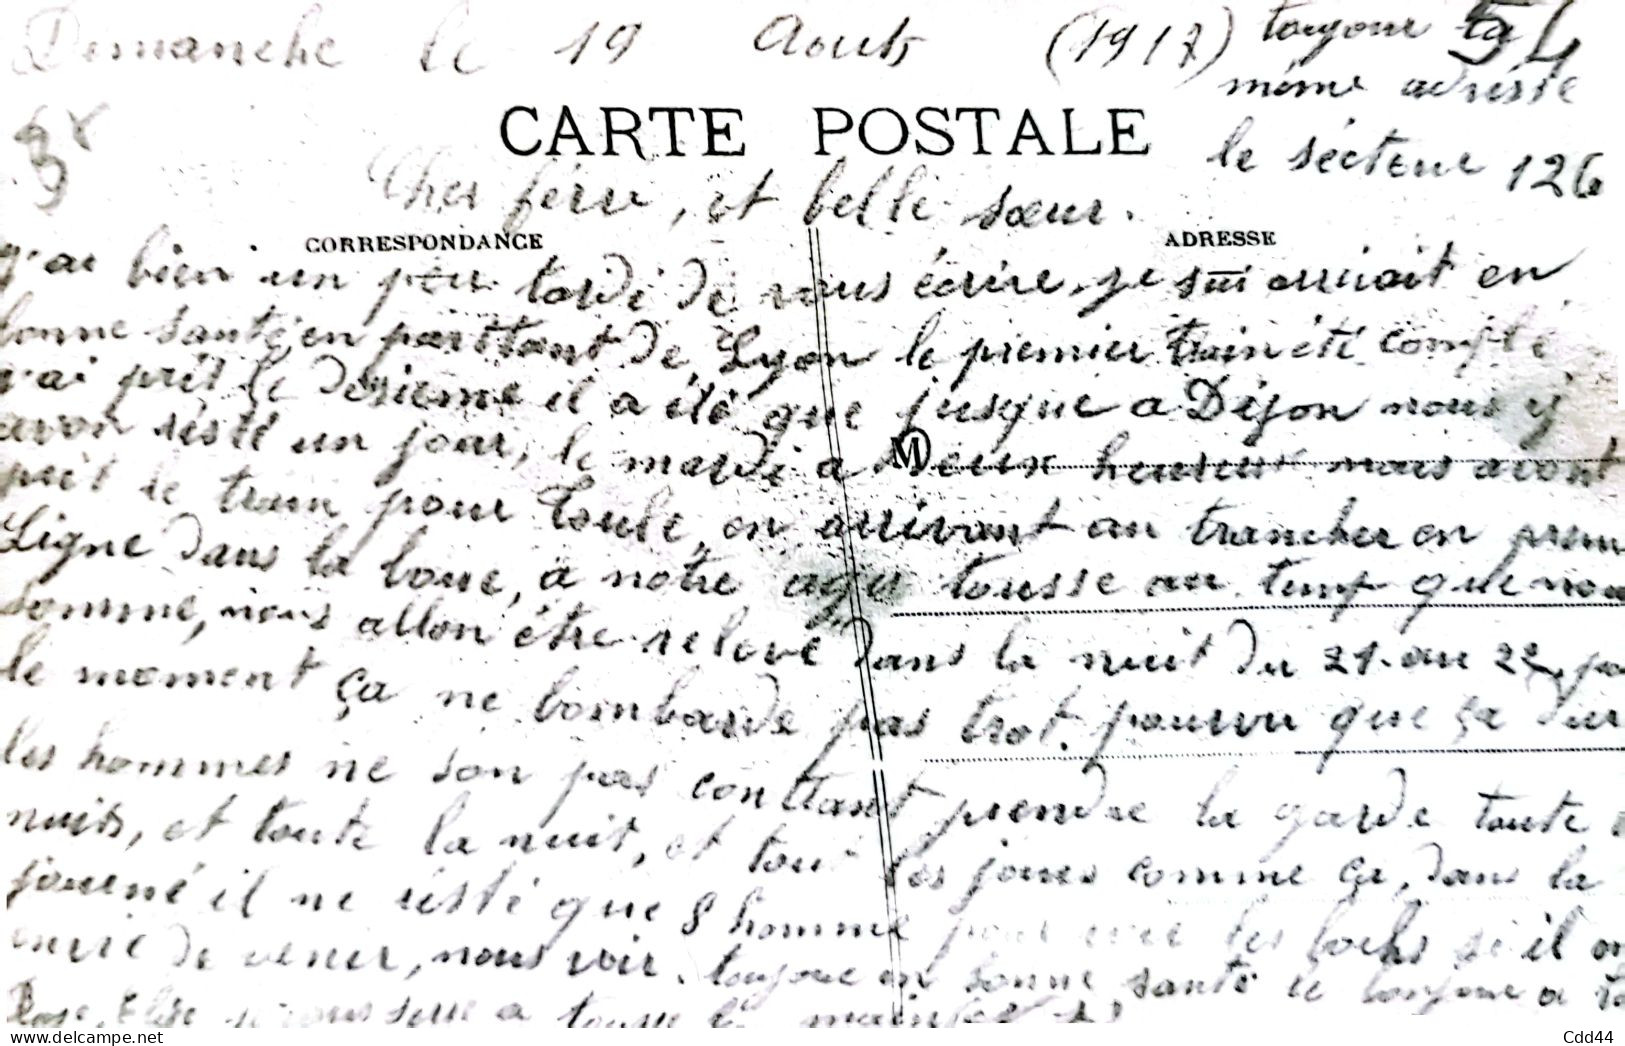 Dimanche le 19 Aout (1917) toujour ta
54
même adrésse
le sécteur 126
CARTE POSTALE
Cher férre, et belle sœur.
CORRESPONDANCE
ADRESSE
j'ai bien un peu tardé de vous écrire, je sui arrivait en
bonne santé, en parttant de Lyon le premier train été complé
j'ai prit le desieme il a été que jusque a Dijon nous y
avon résté un jour, le mardi a deux heures nous avont
prit le train pour Toule, en arrivant au trancher en prem
Ligne dans la boue, a notre tousse au temp que nou
somme, nous allon étre relové dans la nuit du 21 au 22,
le moment ça ne bombarde pas trot. pourvu que ça dur
les hommes ne son pas conttant prendre la garde toute
nuits, et toute la nuit, et tout les joures comme ça, dans la
journé il ne résté que 8 homme pour les bochs si il on
envie de venir, nous voir. toujour en bonne santé le bonjour a
Rose, Elise je vous serre a tousse la main
M
delcampe.net
Cdd44